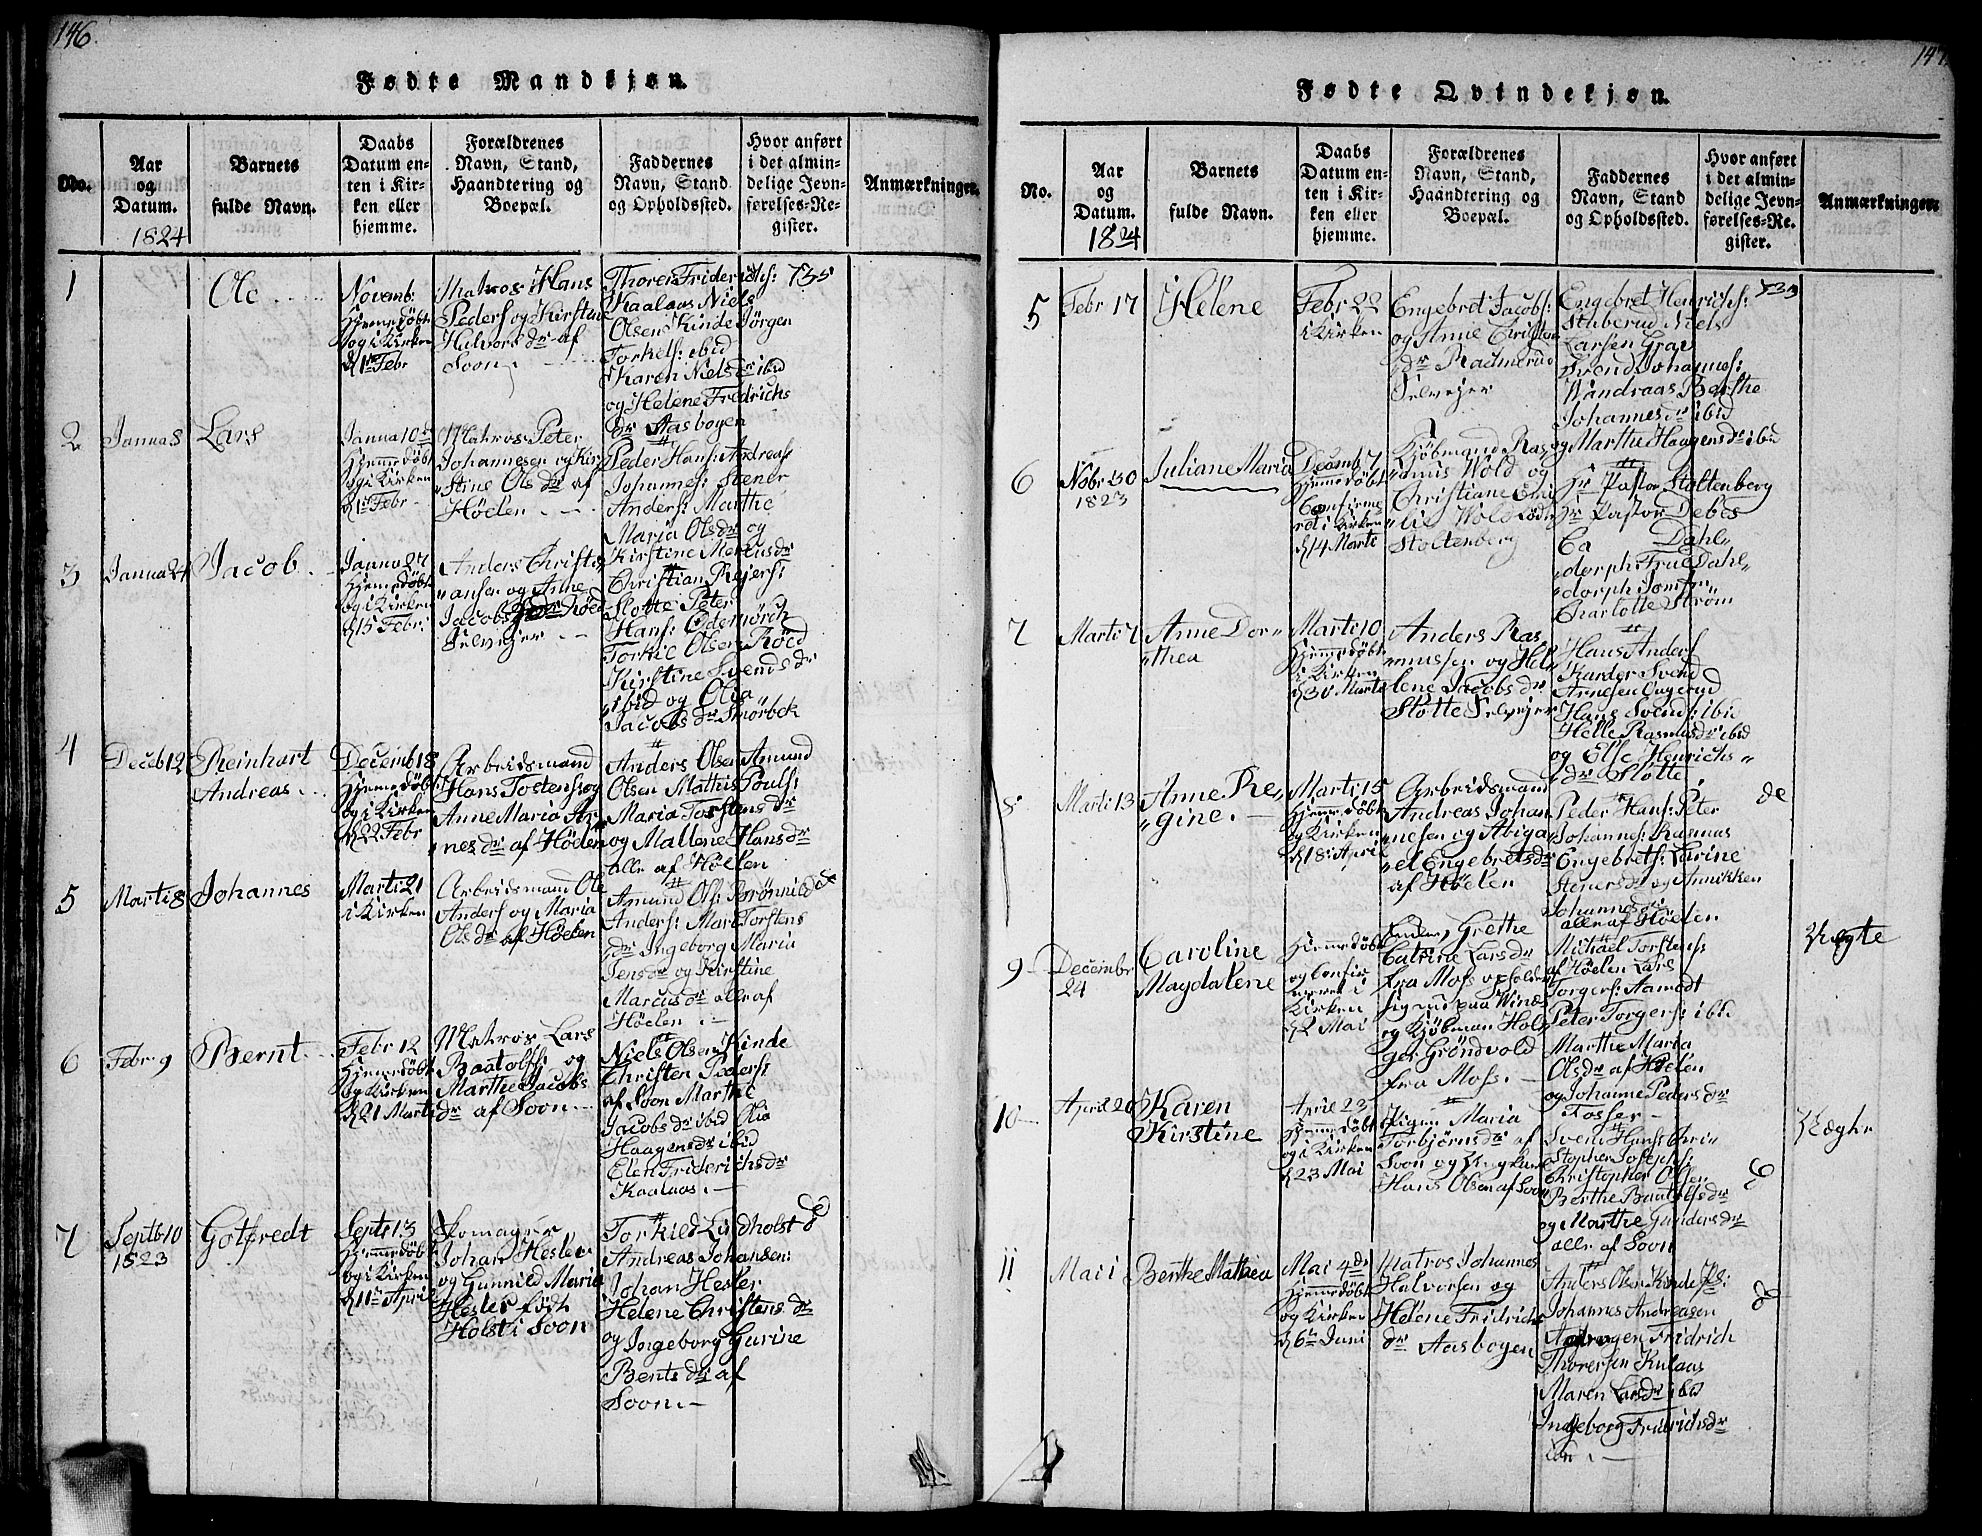 146.
Fødte Mandkjøn.
No.
Aar
og
Datum.
1824
Barnets
fulde Navn.
Daabs
Datum en-
ten i Kir-
ken eller
hjemme.
Forældrenes
Navn, Stand,
Haandtering og
Boepæl.
Faddernes
Navn, Stand
og Opholdssted.
Hvor anført
i det almin-
delige Jevn-
førelses-Re-
gister.
Anmærkninger.
1
Ole
Novemb:
Hjemedøbt
og i Kirken
d 1te Febr
Matros Hans
Peders og Kirstine
Halvors dr af
Soon
Thorer Friderichs:
Kaalaas Niels
Olsen Kinde Jörgen
Torkels: ibid
Karen Niels dr ibid
og Helene Fredrichs
dr Aasbogen
735
2
Janua 8
Lars
Janua 10de
Hjemedøbt
og i Kirken
d 1te Febr
Matros Peter
Johannesen og Kir
stine Ols dr af
Höelen
Peder Hans: Andreas
Johannes: Stener
Anders: Marthe
Maria Olsdr og
Kirstine Marcusdr
3
Janua 24
Jacob
Janua 27
Hjemedøbt
og i Kirken
d 15 Febr:
Anders Christi
ansen og Anne
Jacobs dr Röed
Selvejer
Christian Rejers:
Slotte Peter
Hans: Odemörch
Torkil Olsen Röed
Kirstine Svends dr
ibid og Olia
Jacobs dr Smörbek
4
Deceb 12
Reinhart
Andreas
Decemb 18
Hjemedøbt
og i Kirken
d 22 Febr
Arbeidsmand
Hans Tostens: og
Anne Maria Ar
nes dr af Höelen
Anders Olsen Amund
Olsen Mathis Pouls:
Maria Torstens dr
og Mallene Hans dr
alle af Höelen
5
Marti 8
Johannes
Marti 21
i Kirken
Arbeidsmand Ole
Anders og Maria
Ols dr af Höelen
Amund Ols: Brönnild
Anders: Mari Torstens
dr Ingeborg Maria
Jensdr og Kirstine
Marcus dr alle af
Höelen
6
Febr 9
Bernt
Febr 12
Hjemedøbt
og i Kirken
d 21 Marti
Matros Lars
Baatolfs: og
Marthe Jacobs
dr af Soon
Niels Olsen Kinde
Christen Peders:
af Soon Marthe
Jacobs dr ibid Olia
Haagensdr ibid
Elen Friderichsdr
Kaalaas
7
Septb 10
1823
Gotfredt
Septr 13
Hjemedøbt
og i Kirken
d 11te April
Skomager
Johan Hesler
og Gunnild Maria
Hesler födt
Holst i Soon
Torkild Lindholst
Andreas Johansen:
Johan Hesler
Helene Christens dr
og Ingeborg Gurine
Bents dr af
Soon
147
Fødte Qvindekjøn.
No.
Aar
og
Datum.
1824
Barnets
fulde Navn.
Daabs
Datum en-
ten i Kir-
ken eller
hjemme.
Forældrenes
Navn, Stand,
Haandtering og
Boepæl.
Faddernes
Navn, Stand
og Opholdssted.
Hvor anført
i det almin-
delige Jevn-
førelses-Re-
gister.
Anmærkninger
5
Febr 17
Helene
Febr 22
i Kirken
Engebret Jacobs:
og Anne Christen
dr
Selvejer
Engebret Henrichs:
Stuberud Niels
Larsen Grav
Svend Johannes:
Wandraas Berthe
Johannesdr ibid
og Marthe Haagensdr ibid
6
Nobr 30
1823
Juliane Maria
Decemb 7
Hjemedøbt
Confirme
ret i Kirken
d 14 Marti
Kjöbmand Ras
mus Wold og
Christiane Emi
lie Wold födt
Stoltenberg
Hr Pastor Stoltenberg
Hr Pastor Debes
Ca Dahl
dorph Frue Dahl
dorph Jomfr
Charlotte Ström
7
Marti 7
Anne Dor
thea
Marti 10
Hjemedøbt
i Kirken
d 30 Marti
Anders Ras
mussen og Hel
lene Jacobs dr
Slotte Selvejer
Hans Anders
Kander Svend
Arnesen Ougerud
Hans Svends: ibid
Helle Rasmusdr ibid
og Else Henrichs
dr Slotte
8
Marti 13
Anne Re
gine
Marti 15
Hjemedøbt
og i Kirken
d 18 April
Arbeidsmand
Andreas Johan
nesen og Abiga
el Engebretsdr
af Höelen
Peder Hans: Peter
Johannes: Rasmus
Engebrets: Larine
Stenersdr og Annikken
Johannesdr
alle af Höelen
de
9
Decembr
24
Caroline
Magdalene
Hjemedøbt
og Confir
meret i
Kirken
d 2 Mai
Grethe
Catrine Larsdr
fra Moss opholder
sig nu paa Winds
og Kjöbman Hol
ger Gröndvold
fra Moss.
Michael Torstens:
af Höelen Lars
Torgers: Aamodt
Peter Torgers: ibid
Marthe Maria
Olsdr af Höelen
og Johanne Peders dr
Tosser
Uægte
10
April 20
Karen
Kirstine
April 23
Hjemedøbt
og i Kirken
d 23 Mai
Pigen Maria
Torbjörnsdr af
Soon og Ungkarl
Hans Olsen af Soon
Svend Hans: Chri
stopher Josephs:
Christopher Olsen
Berthe Baatolfsdr
og Marthe Gundersdr
alle af Soon
Uægte
11
Mai 1
Berthe Mathea
Mai 4de
Hjemedøbt
og i Kirken
d 6te Juni
Matros Johannes
Halvorsen og
Helene Fridrichs
dr Aasbogen
Anders Olsen Kinde
Johannes Andreasen
Aasbogen Fridrich
Thoresen Kulaas
Maren Larsdr ibid
Ingeborg Fridrichsdr